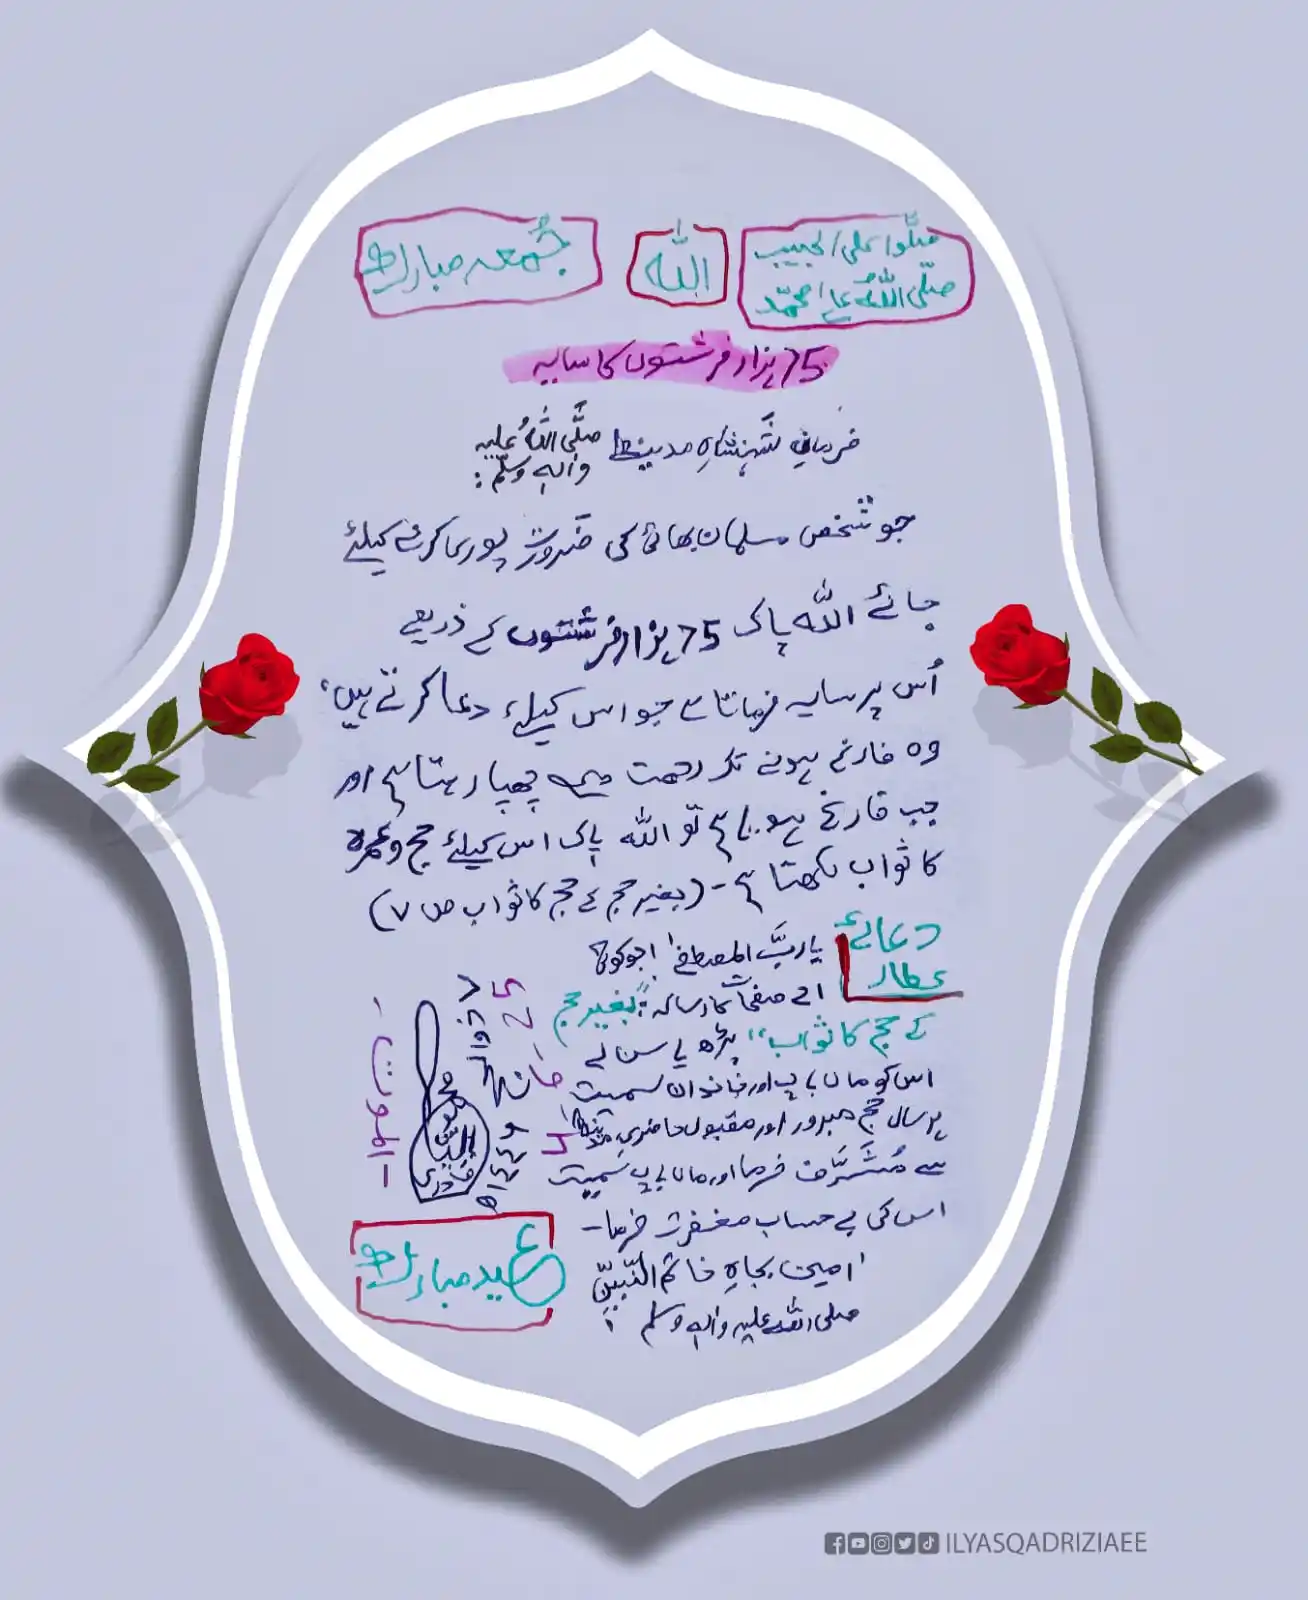 صلّوا علی الحبیب
صلّی اللہُ علٰی محمّد
اللہ
جُمعہ مبارک
75 ہزار فرشتوں کا سایہ
فرمانِ شَہَنشاہِ مدینہ صلَّی اللہُ علیہ
واٰلہٖ وسلَّم :
جو شخص مسلمان بھائی کی ضَرورت پوری کرنے کیلئے
جائے اللہ پاک 75 ہزار فرشتوں کے ذریعے
اُس پر سایہ فرماتا ہے جو اس کیلئے دعا کرتے ہیں،
وہ فارغ ہونے تک رحمت میں چھپا رہتا ہے اور
جب فارغ ہو جاتا ہے تو اللہ پاک اس کیلئے حج و عمرہ
کا ثواب لکھتا ہے - (بغیر حج کے حج کا ثواب ص ۷)
دعائے
عطار
یا ربَّ المصطفٰے! جو کوئی
صفحات کا رسالہ : "بغیر حج
کے حج کا ثواب" پڑھ یا سن لے
اس کو ماں باپ اور خاندان سمیت
ہر سال حج مبرور اور مقبول حاضریِ مدینہ
سے مُشَرَّف فرما اور ماں باپ سمیت
اس کی بے حساب مغفرت فرما -
اٰمین بجاہِ خاتم النّبیّن
صلی اللہ علیہ واٰلہٖ وسلم
الموت
محمد
الیاس
قادری
عید مبارک
ILYASQADRIZIAEE